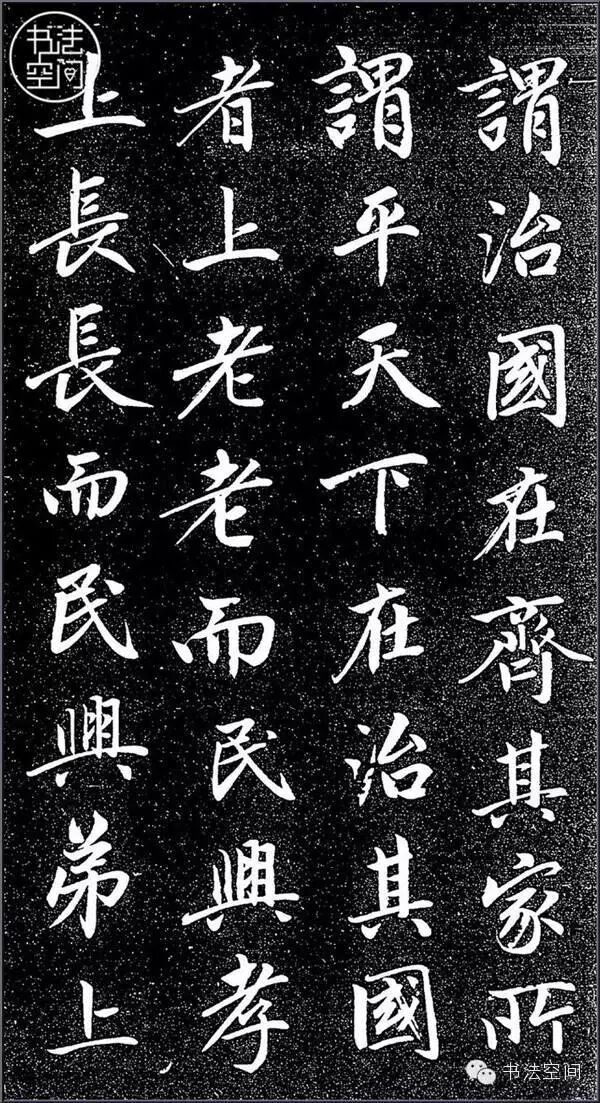 謂治國在齊其家所
謂平天下在治其國
者上老老而民興孝
上長長而民興弟上
书法空间
书法空间